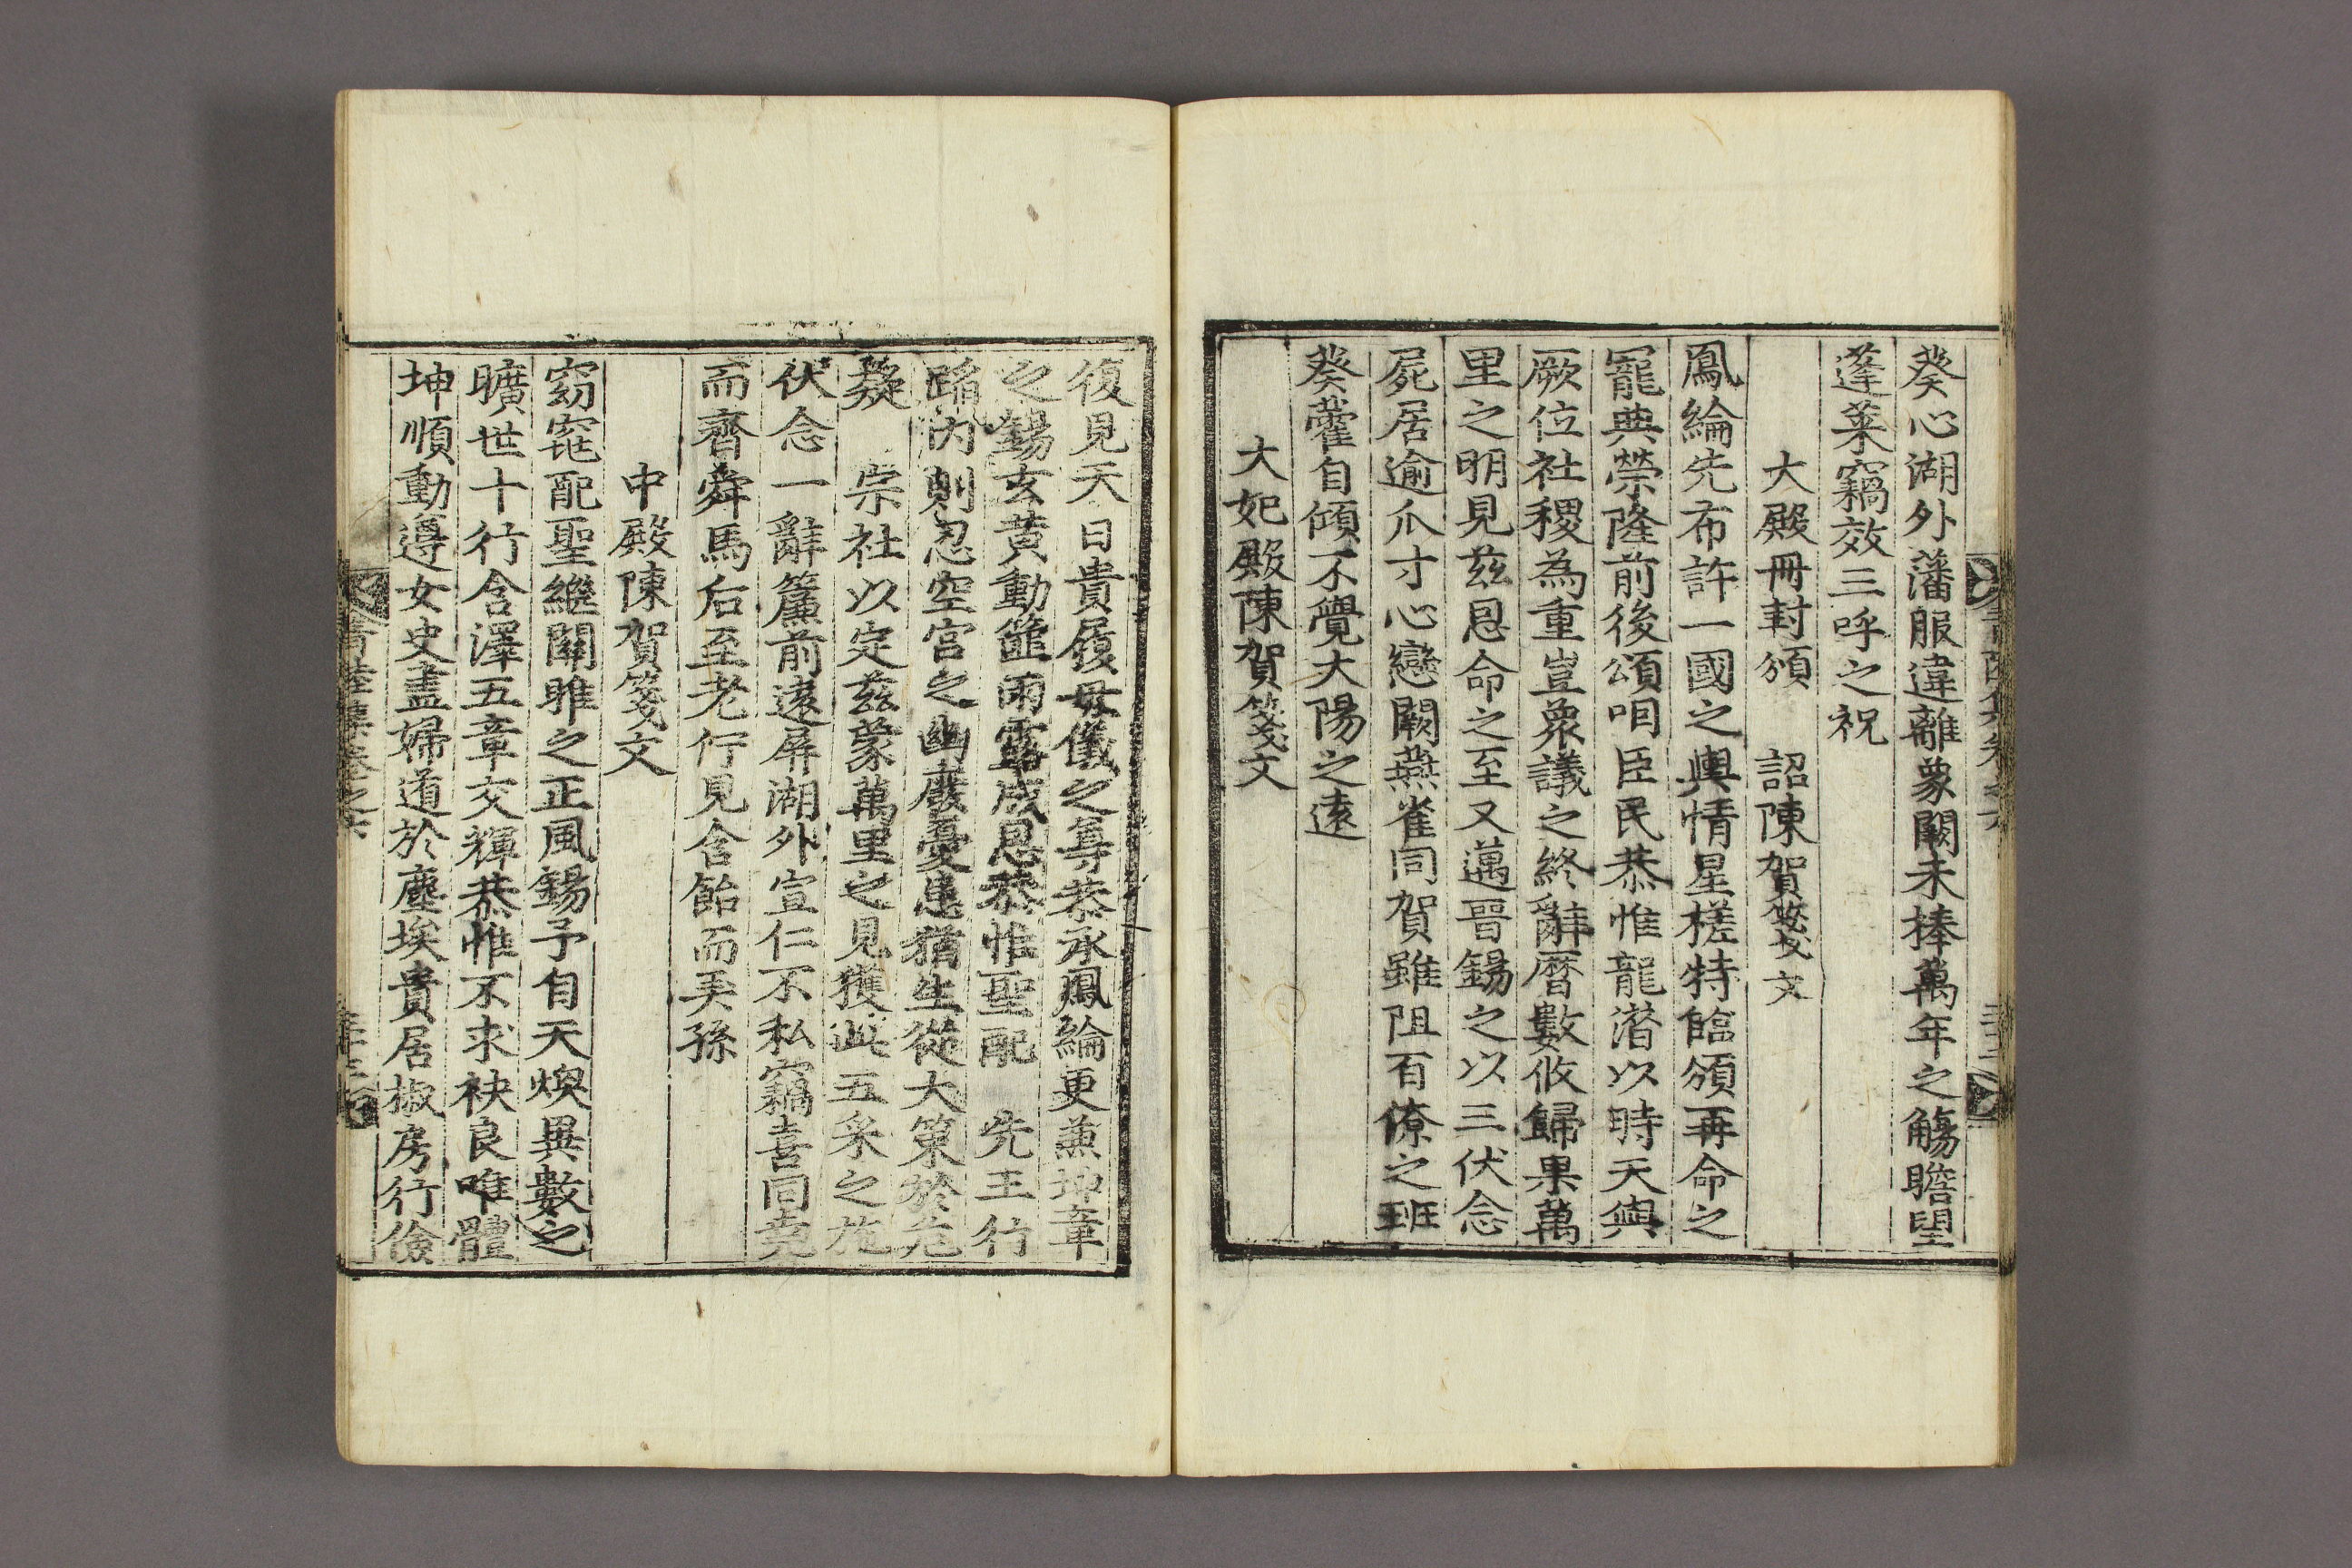 葵心湖外藩服違離象闕未捧萬年之觴瞻望
蓬萊竊效三呼之祝
大殿冊封頒　詔陳賀箋文
鳳綸先布許一國之輿情星槎特臨頒再命之
寵典榮隆前後頌咽臣民恭惟龍潛以時天與
厥位社稷為重豈衆議之終辭曆數攸歸果萬
里之明見茲恩命之至又邁晉錫之以三伏念
屍居逾爪寸心戀闕燕雀同賀雖阻百僚之班
葵藿自傾不覺大陽之遠
大妃殿陳賀箋文
復見天日貴履母儀之尊恭承鳳綸更兼坤章
之錫玄黃動篚雨露成恩恭惟聖配　先王行
蹈內則忍空宮之幽廢憂患猶生從大策於危
疑　宗社以定茲蒙萬里之見獲此五釆之施
伏念一辭簾前遠屏湖外宣仁不私竊喜同堯
而齊舜馬后至老佇見含飴而弄孫
中殿陳賀箋文
窈窕配聖繼關雎之正風錫予自天煥異數之
曠世十行含澤五章交輝恭惟不求袂良唯體
坤順動遵女史盡婦道於塵埃貴居椒房行儉